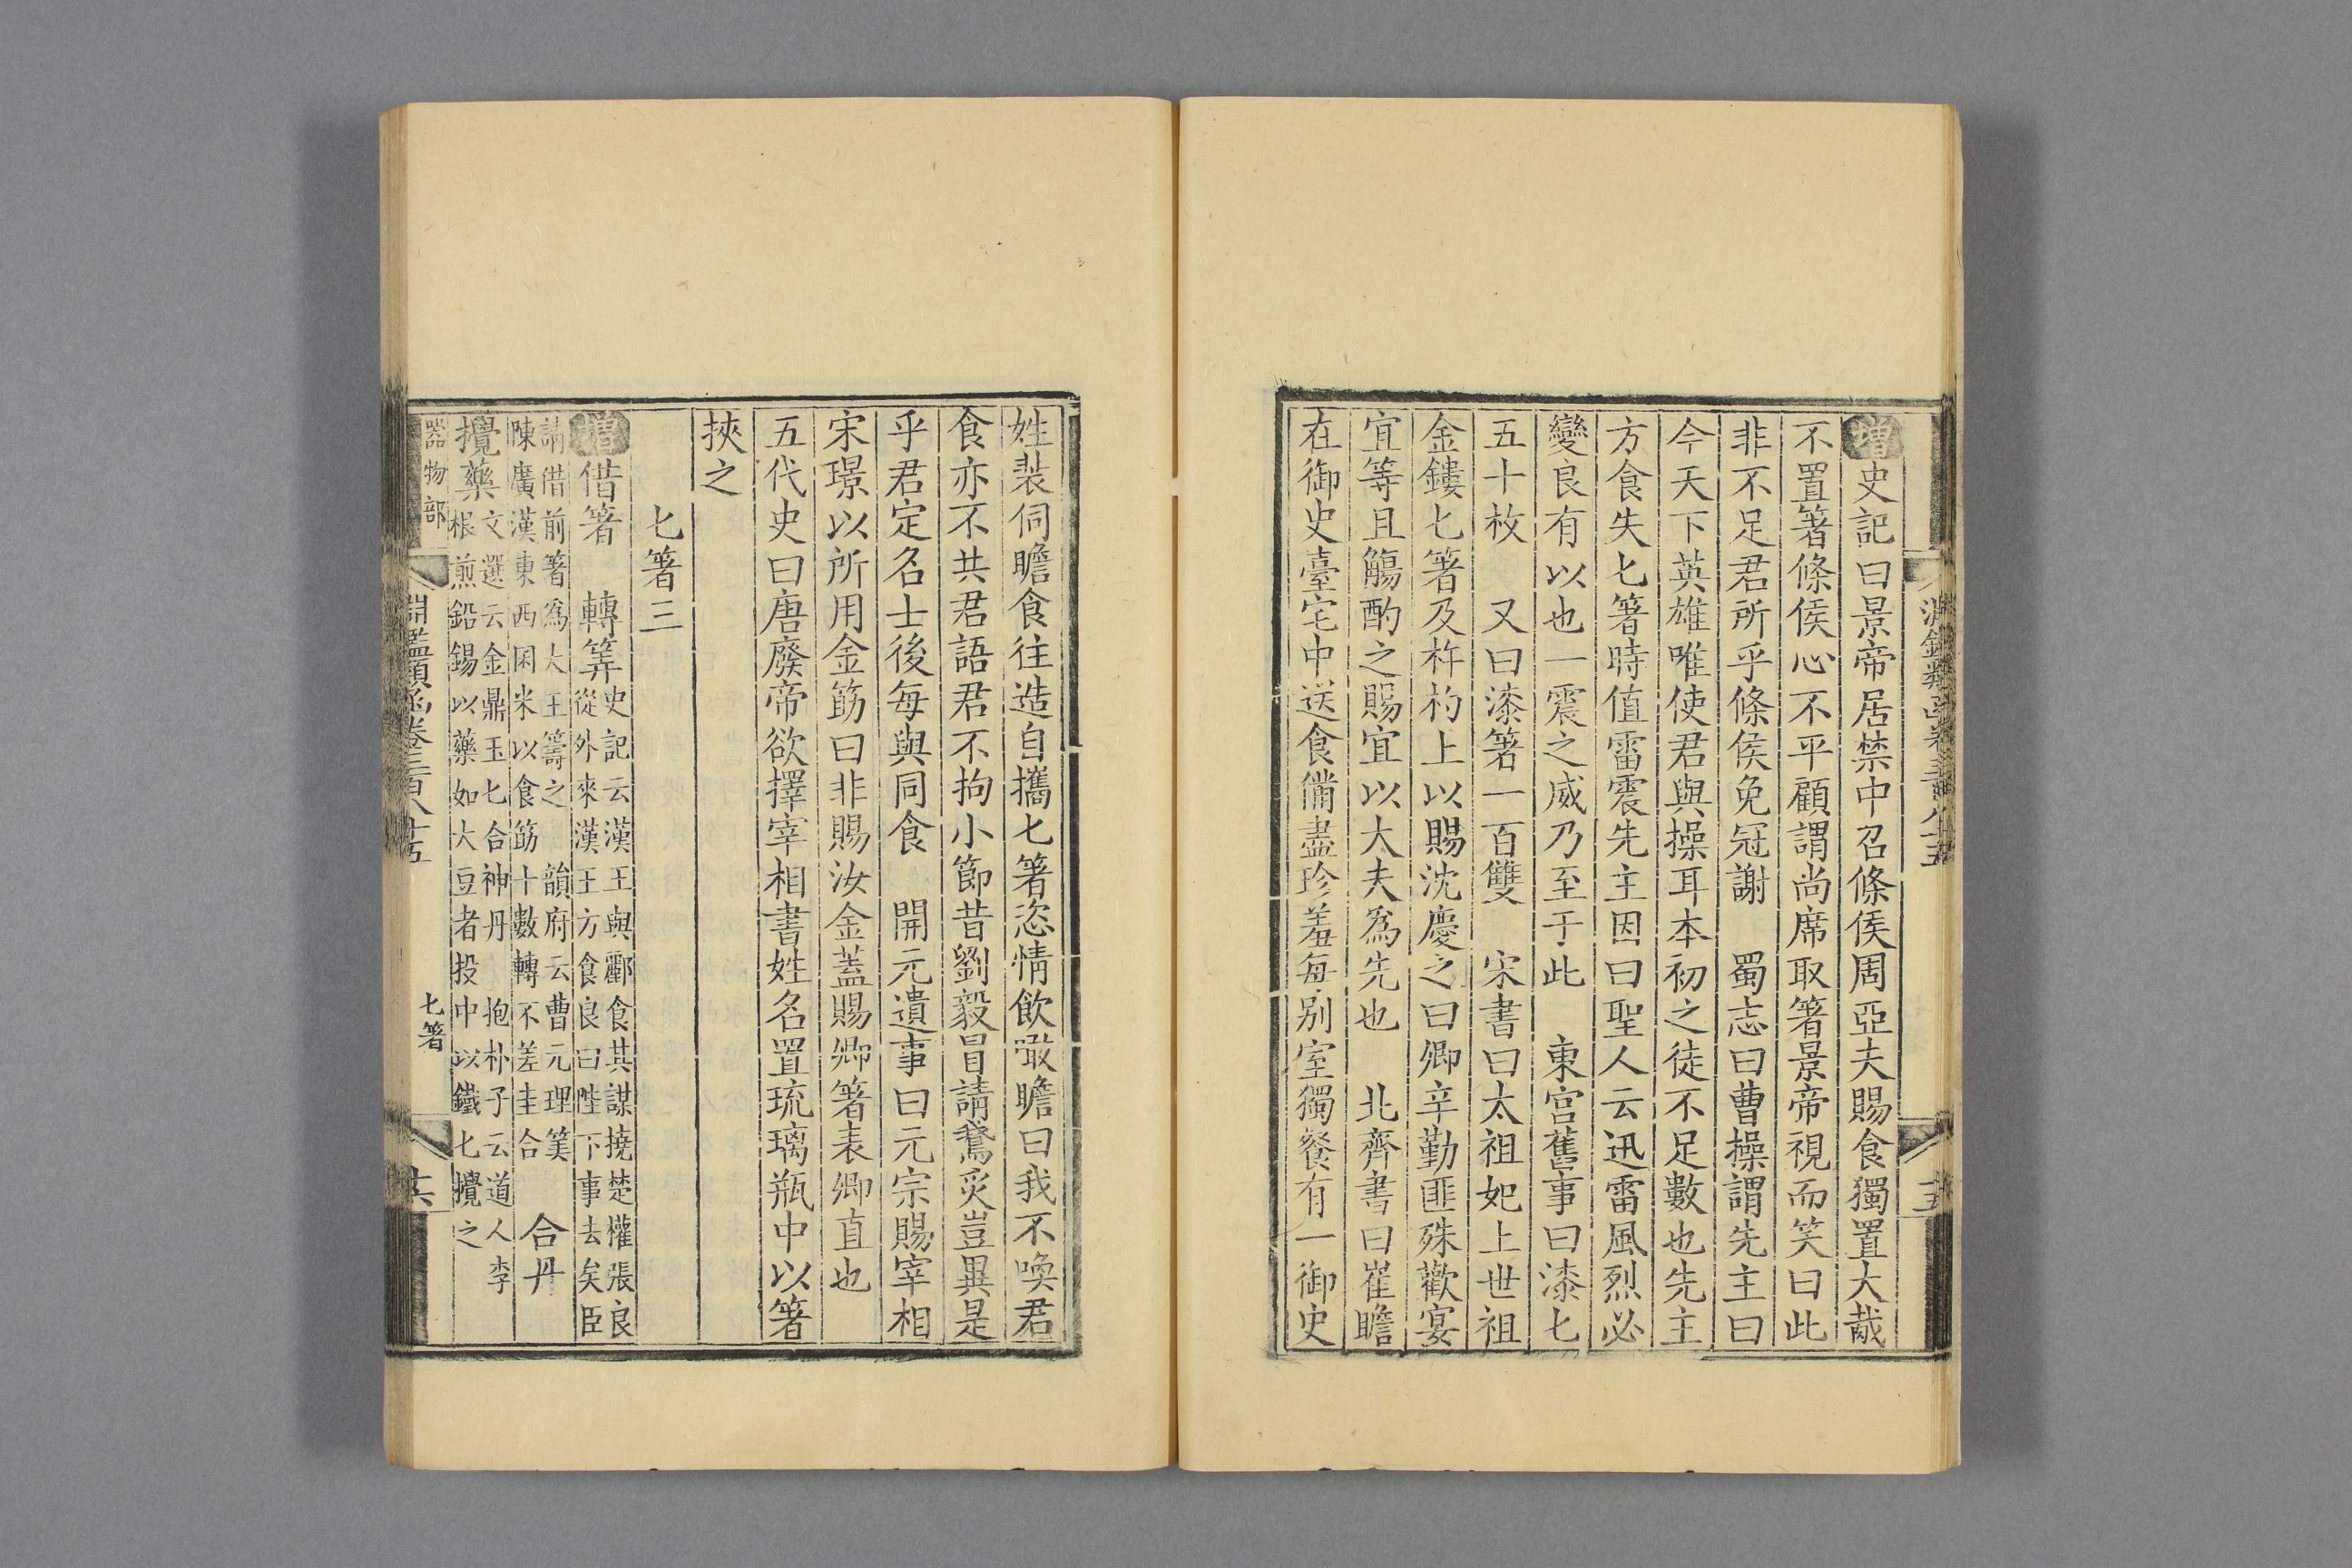 增史記曰景帝居禁中召條侯周亞夫賜食獨置大胾
不置箸條侯心不平顧謂尚席取箸景帝視而笑曰此
非不足君所乎條侯免冠謝　蜀志曰曹操謂先主曰
今天下英雄唯使君與操耳本初之徒不足數也先主
方食失匕箸時值雷震先主因曰聖人云迅雷風烈必
變良有以也一震之威乃至于此　東宮舊事曰漆匕
五十枚　又曰漆箸一百雙　宋書曰太祖妃上世祖
金鏤匕箸及杵杓上以賜沈慶之曰卿辛勤匪殊歡宴
宜等且觴酌之賜宜以大夫為先也　北齊書曰崔瞻
在御史臺宅中送食備盡珍羞每別室獨餐有一御史
姓裴伺瞻食往造自攜匕箸恣情飲噉瞻曰我不喚君
食亦不共君語君不拘小節昔劉毅冒請鵞炙豈異是
乎君定名士後每與同食　開元遺事曰元宗賜宰相
宋璟以所用金筯曰非賜汝金蓋賜卿箸表卿直也
五代史曰唐廢帝欲擇宰相書姓名置琉璃瓶中以箸
挾之
匕箸三
增借箸　轉筭史記云漢王與酈食其謀撓楚權張良
從外來漢王方食良曰陛下事去矣臣
請借前箸為大王籌之　韻府云曹元理筭
陳廣漢東西囷米以食筯十數轉不差圭合　合丹
攪藥文選云金鼎玉匕合神丹　抱朴子云道人李
根煎鉛錫以藥如大豆者投中以鐵匕攪之
器物部　淵鑑類函卷三百八十五　匕箸　十六